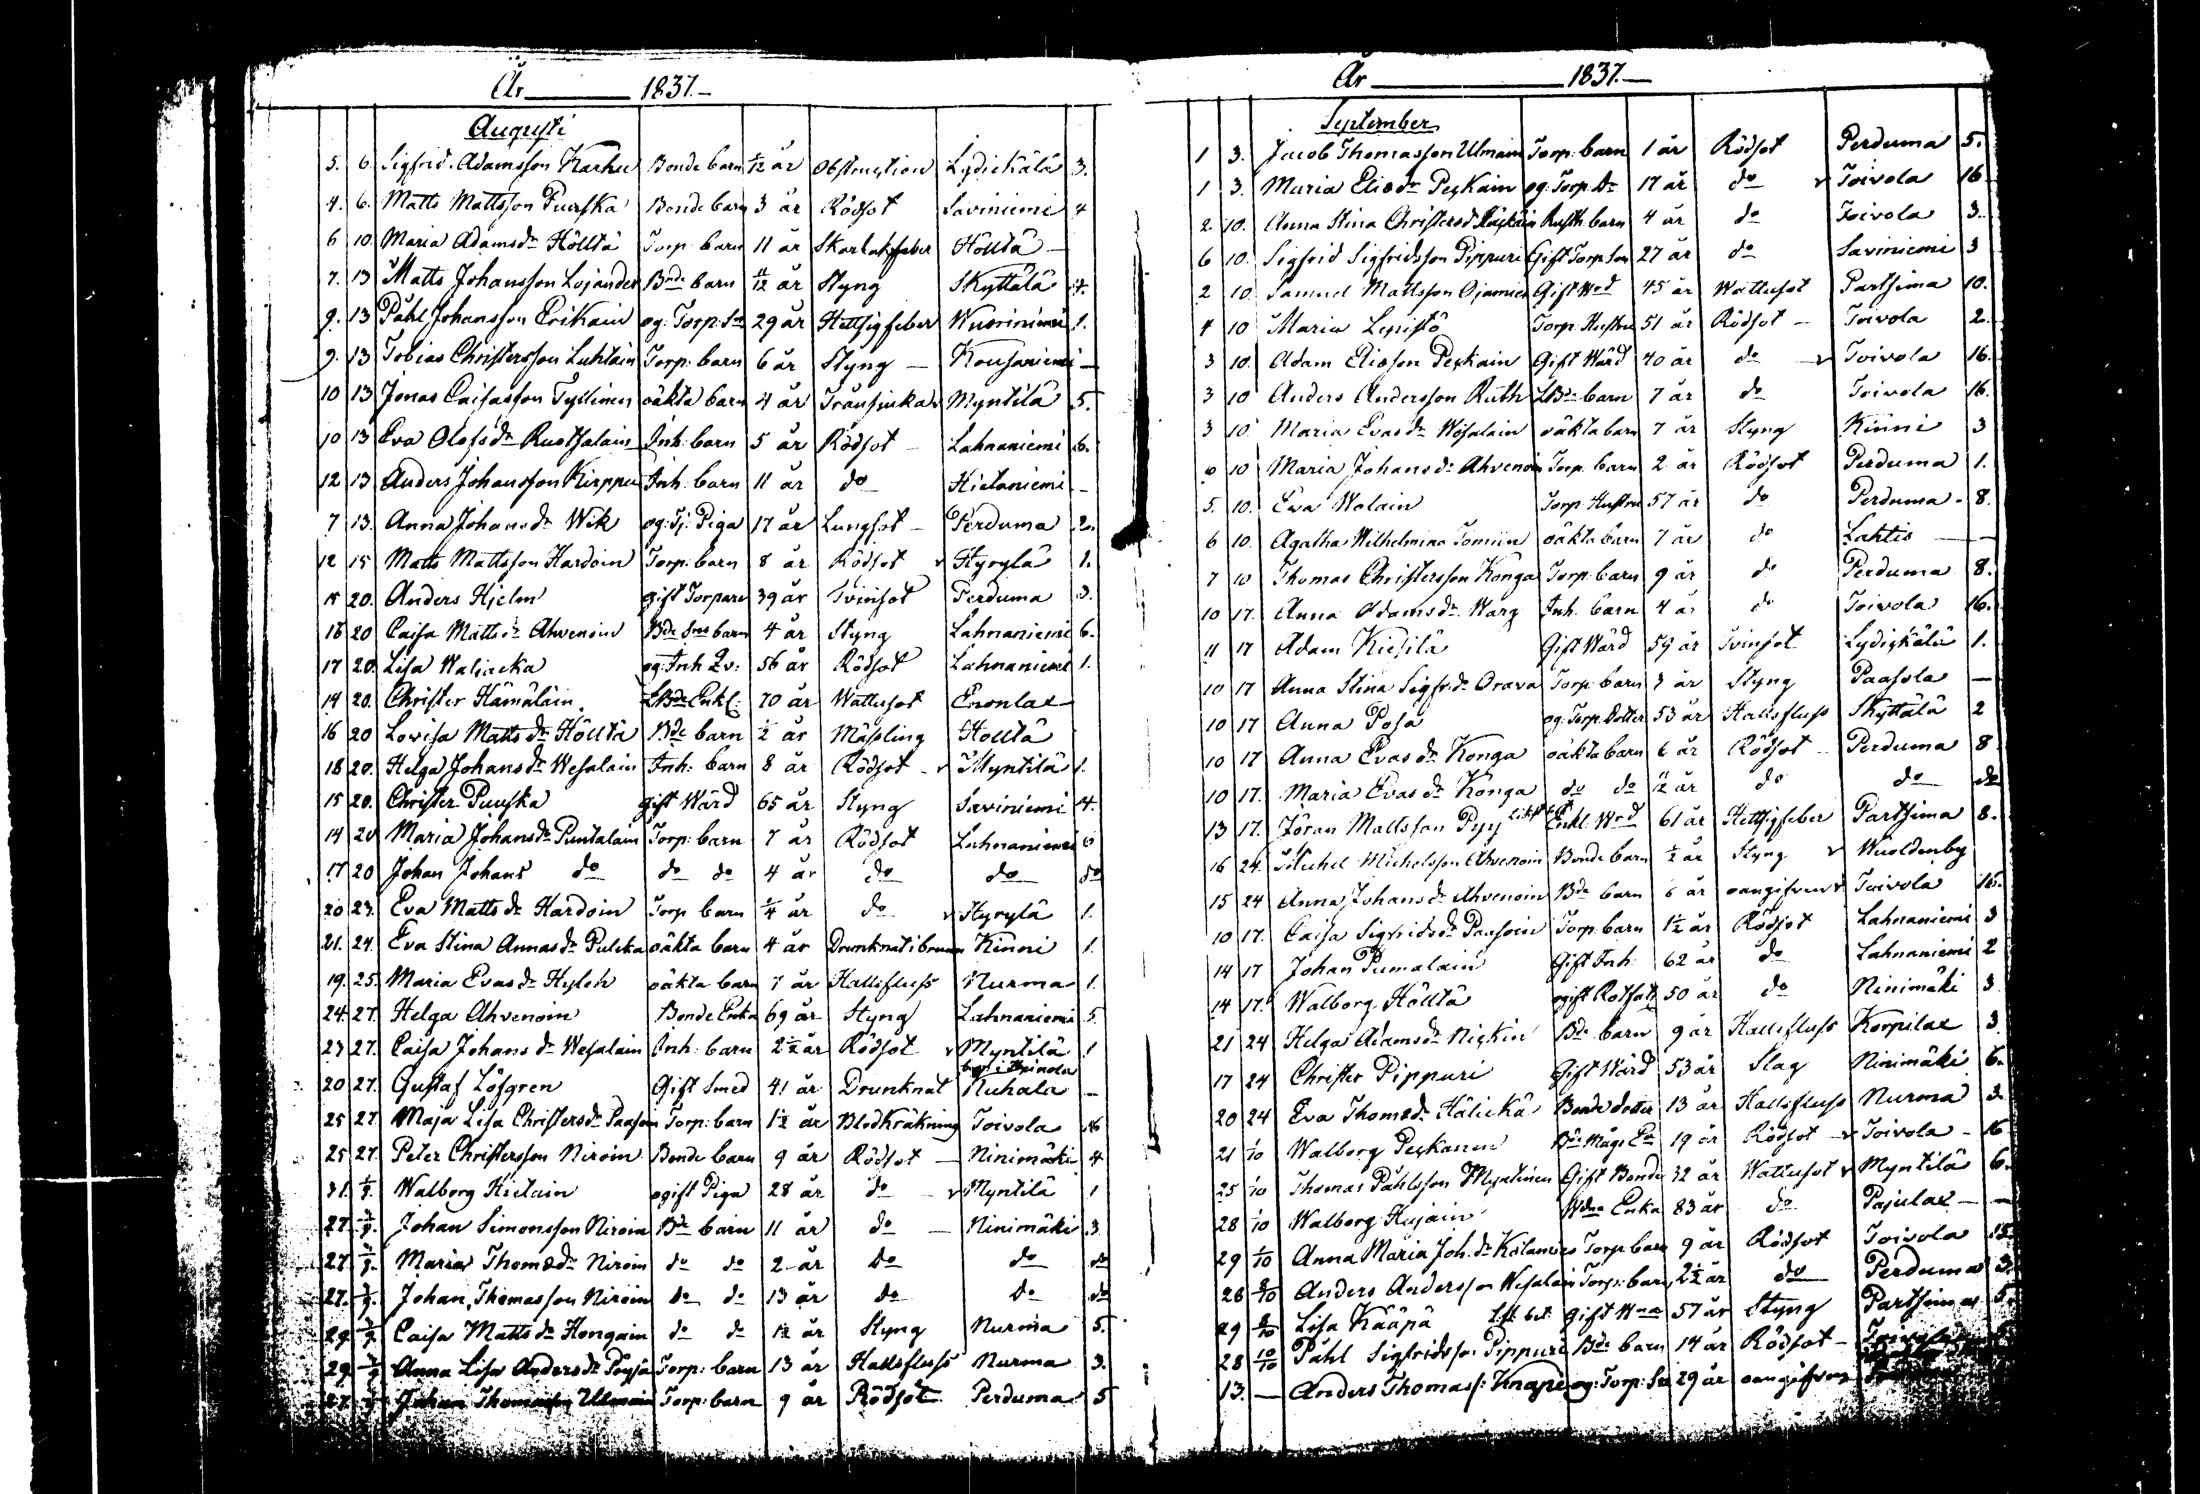 År 1837.
Augusti
5. 6. Sigfrid Adamsson Karhu Bonde barn 1/12 år Obstruction Lydickälä 3.
4. 6. Matts Mattsson Puuska Bonde barn 3 år Rödsot Saviniemi 4
6 10 Maria Adamsdr Hölltä Torp. barn 11 år Skarlaksfeber Hölltä —
7. 13 Matts Johansson Lojander Bnde barn 11/12 år Styng Skyttälä 4.
9. 13 Påhl Johansson Erikain og: Torp: Sn 29 år Hettsigfeber Wuoriniemi 1.
9. 13 Tobias Christersson Luhtain Torp: barn 6 år Styng — Kousaniemi —
10 13 Jonas Caisasson Tyllinen oäkta barn 4 år Myntilä 5.
10 13 Eva Olofsdr Ruottsalain Inh: barn 5 år Rödsot — Lahnaniemi 6.
12 13 Anders Johansson Kirppu Inh: barn 11 år do Hietaniemi —
7 13. Anna Johansdr Wik og: Tj: Piga 17 år Lungsot — Perduma 2.
12 15 Matts Mattsson Hardoin Torp: barn 8 år Rödsot v Hyrylä 1.
15 20. Anders Hjelm gift Torpare 39 år Tvinsot Perduma 3.
16 20 Caisa Mattsdr Ahvenoin Bde Sns barn 4 år Styng Lahnaniemi 6.
17 20. Lisa Waljacka og: Inh Qv: 56 år Rödsot Lahnaniemi 1.
14 20. Christer Hämäläin LBde Enkl: 70 år Wattusot Enonlax
16 20 Lovisa Mattsdr Hölltä Bde barn 1/2 år Mässling Hölltä
18 20. Helga Johansdr Wesalain Inh: barn 8 år Rödsot — v Myntilä 1.
15 20. Christer Puuska gift Wärd 65 år Styng Saviniemi 4.
14 20 Maria Johansdr Puntalain Torp: barn 7 år Rödsot Lahnaniemi 6
17 20 Johan Johans do do do 4 år do do do
20 23. Eva Mattsdr Hardoin Torp barn 1/4 år do v Hyrylä 1.
21. 24. Eva Stina Annasdr Pulcka oäkta barn 4 år Drunknat i brunn Kinni 1.
19. 25. Maria Evasdr Hyleh oäkta barn 7 år Hallsfluss Nurma 1.
24. 27. Helga Ahvenoin Bonde Enka 69 år Styng Lahnaniemi 5.
23 27. Caisa Johansdr Wesalain Inh: barn 2 1/2 år Rödsot v Myntilä 1
20 27. Gustaf Löfgren Gift Smed 41 år Drunknat Nuhala —
25 27. Maja Lisa Christersdr Paasoin Torp: barn 1 1/2 år Blodkräkning Toivola 16
25 27. Peter Christersson Niroin Bonde barn 9 år Rödsot — Ninimäki 4
31. 1/9. Walborg Hietain ogift Piga 28 år do v Myntilä 1
27. 3/9. Johan Simonsson Niroin Bde barn 11 år do — Ninimäki 3
27 3/9. Maria Thomædr Niroin do do 2 år do do do
27. 3/9. Johan Thomasson Niroin do do 13 år do do do
29. 3/9. Caisa Mattsdr Hongain do do 1 1/2 år Styng Nurma 5.
29. 3/9 Anna Lisa Andersdr Torp: barn 13 år Hallsfluss Nurma 3.
27. Johan Thomasson Ulmain Torp: barn 9 år Rödsot Perduma 5
År 1837.
September
1 3. Jacob Thomasson Ulmain Torp: barn 1 år Rödsot Perduma 5.
1 3. Maria Eliædr Peskain og: Torp. Dr 17 år do v Toivola 16
2 10. Anna Stina Christersd Rusth barn 4 år do Toivola 3.
6 10. Sigfrid Sigfridsson Pippuri Gift Torp Son 27 år do Saviniemi 3
2 10 Samuel Mattsson Ojamies Gift Wrd 45 år Wattusot Partsima 10.
4 10 Maria Lepistö Torp: Hustru 51 år Rödsot — Toivola 2.
3 10. Adam Eliæson Peskain Gift Wärd 40 år do v Toivola 16.
3 10 Anders Andersson Ruth LBde barn 7 år do Toivola 16.
3 10. Maria Evasdr Wesalain oäkta barn 7 år Styng Kinni 3
6 10 Maria Johansdr Ahvenoin Torp: barn 2 år Rödsot Perduma 1.
5. 10. Eva Walain Torp: Hustru 57 år do Perduma 8.
6 10. Agatha Wilhelmina Tomiin oäkta barn 7 år do Lahtis —
7 10 Thomas Christersson Konga Torp: barn 9 år do Perduma 8.
10 17. Anna Adamsdr Warg Inh. barn 4 år do Toivola 16.
11 17 Adam Kiesilä Gift Wärd 59 år Tvinsot Lydickälä 1.
10 17 Anna Stina Sigfrdr Orava Torp: barn 3 år Styng Paasola —
10 17 Anna Posa og: Torp. dotter 53 år Hallsfluss Skyttälä 2
10 17 Anna Evasdr Konga oäkta barn 6 år Rödsot — Perduma 8
10 17. Maria Evasdr Konga do do 11/12 år do do do
13 17. Jöran Mattsson Pyy Enkl: Wrd 61 år Hettsigfeber Partsima 8.
16 24. Michel Michelsson Ahvenoin Bonde barn 1/2 år Styng v Wuoldenby
15 24 Anna Johansdr Ahvenoin Bde barn 6 år oangifven v Toivola 15.
10 17. Caisa Sigfridsdr Paasoin Torp: barn 1 1/2 år Rödsot Lahnaniemi 3
14 17 Johan Pumalain Gift Inh: 62 år do Lahnaniemi 2
14 17. Walborg Hölltä ogift Rotfatt: 50 år do Ninimäki 3
21 24 Helga Adamsdr Niskin Bde barn 9 år Hallsfluss Korpilax 3.
17 24 Christer Pippuri Gift Wärd 53 år Slag Ninimäki 6.
20 24 Eva Thomædr Hälickä Bonde dotter 13 år Hallsfluss Nurma 3.
21 1/10 Walborg Peskanen 19 år Rödsot — v Toivola — 16
25 1/10 Thomas Påhlsson Myntinen Gift Bonde 32 år Wattusot v Myntilä 6.
28 1/10 Walborg Kujain Wdns Enka 83 år do Pajulax — —
29 1/10 Anna Maria Joh. dr Torp barn 9 år Rödsot Toivola 15
28 8/10 Anders Andersson Wesalain Torp: barn 2 1/2 år do Perduma 3.
29 8/10 Lisa Kääpä gift Wna 57 år Styng Partsima 5.
28 10/10 Påhl Sigfridsson Pippuri Bde barn 14 år Rödsot —
13. — Anders Thomass: Knape og: Torp: Sn 29 år oangifven